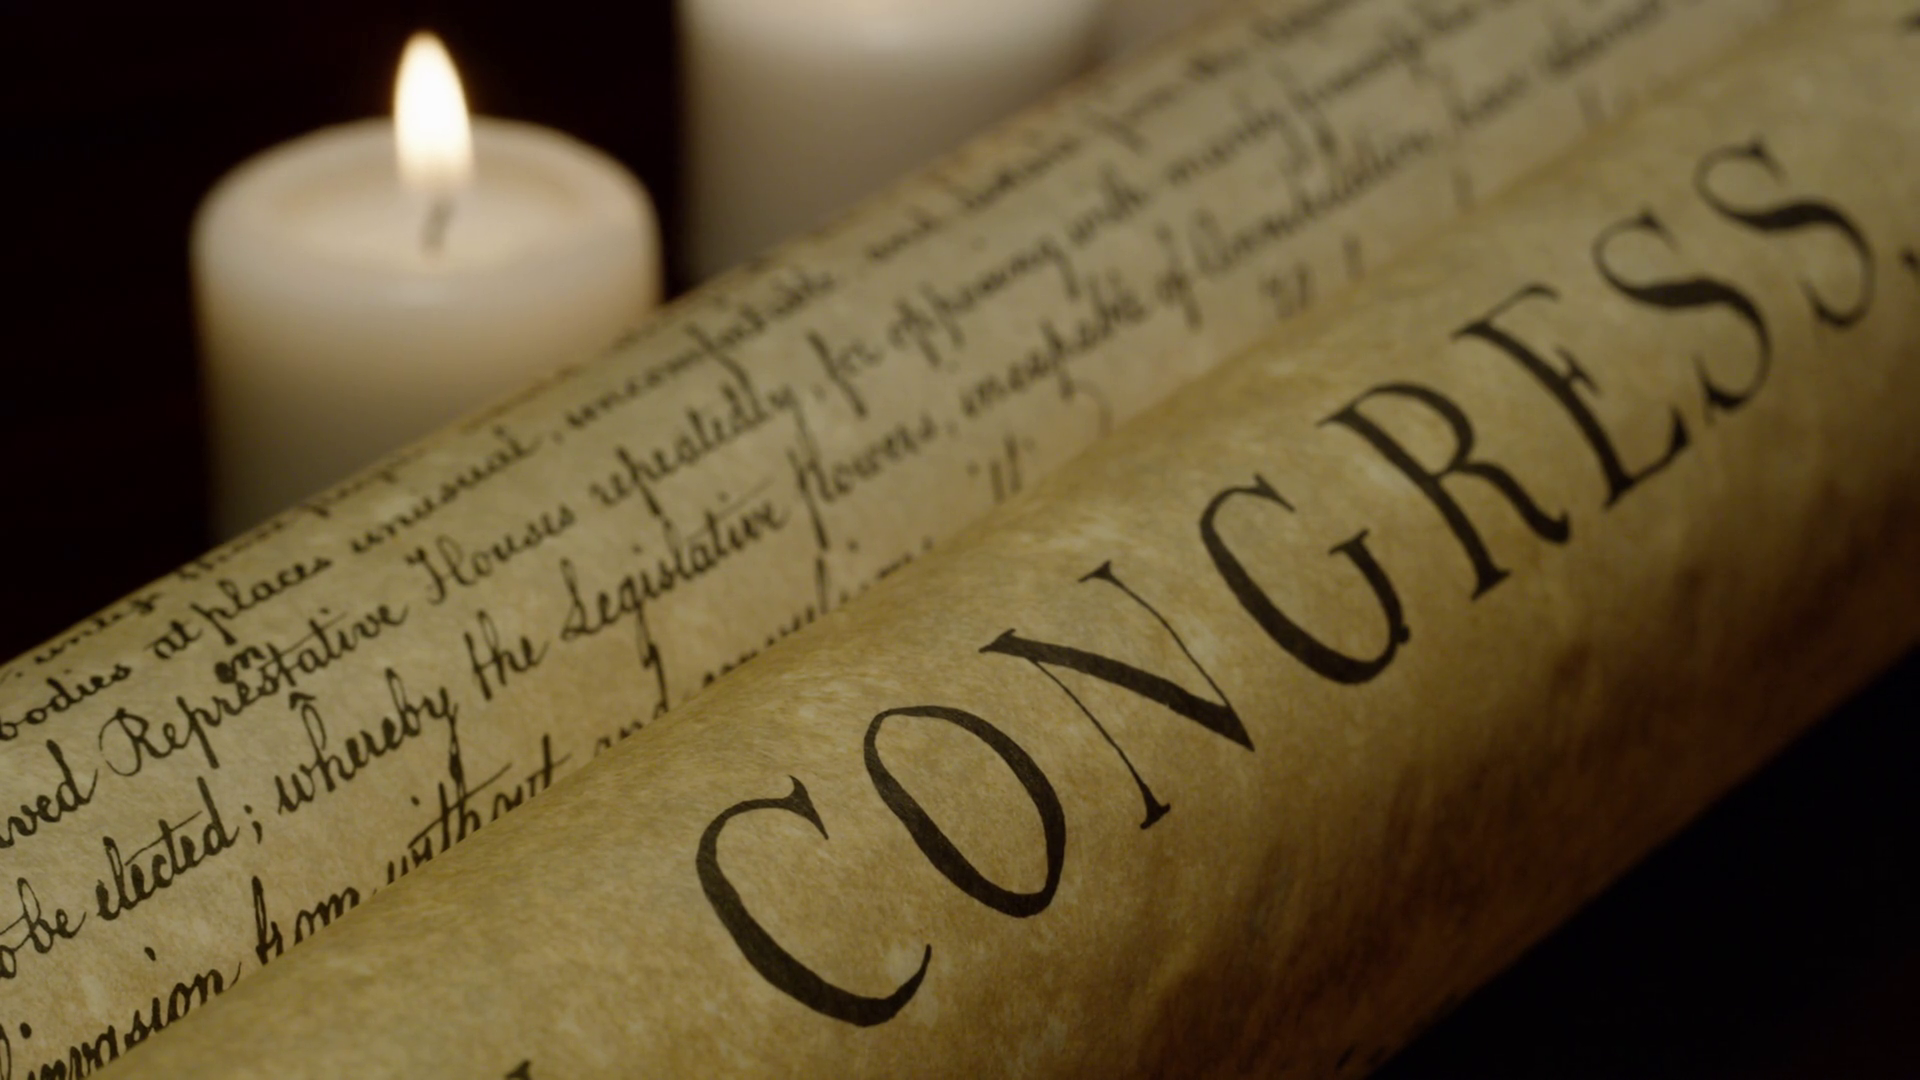 bodies at places unusual, uncomfortable and distant from the
ved Representative Houses repeatedly, for opposing with manly
en
to be elected; whereby the Legislative Powers, incapable of Annihilation, have
invasion from without and convulsions
CONGRESS,